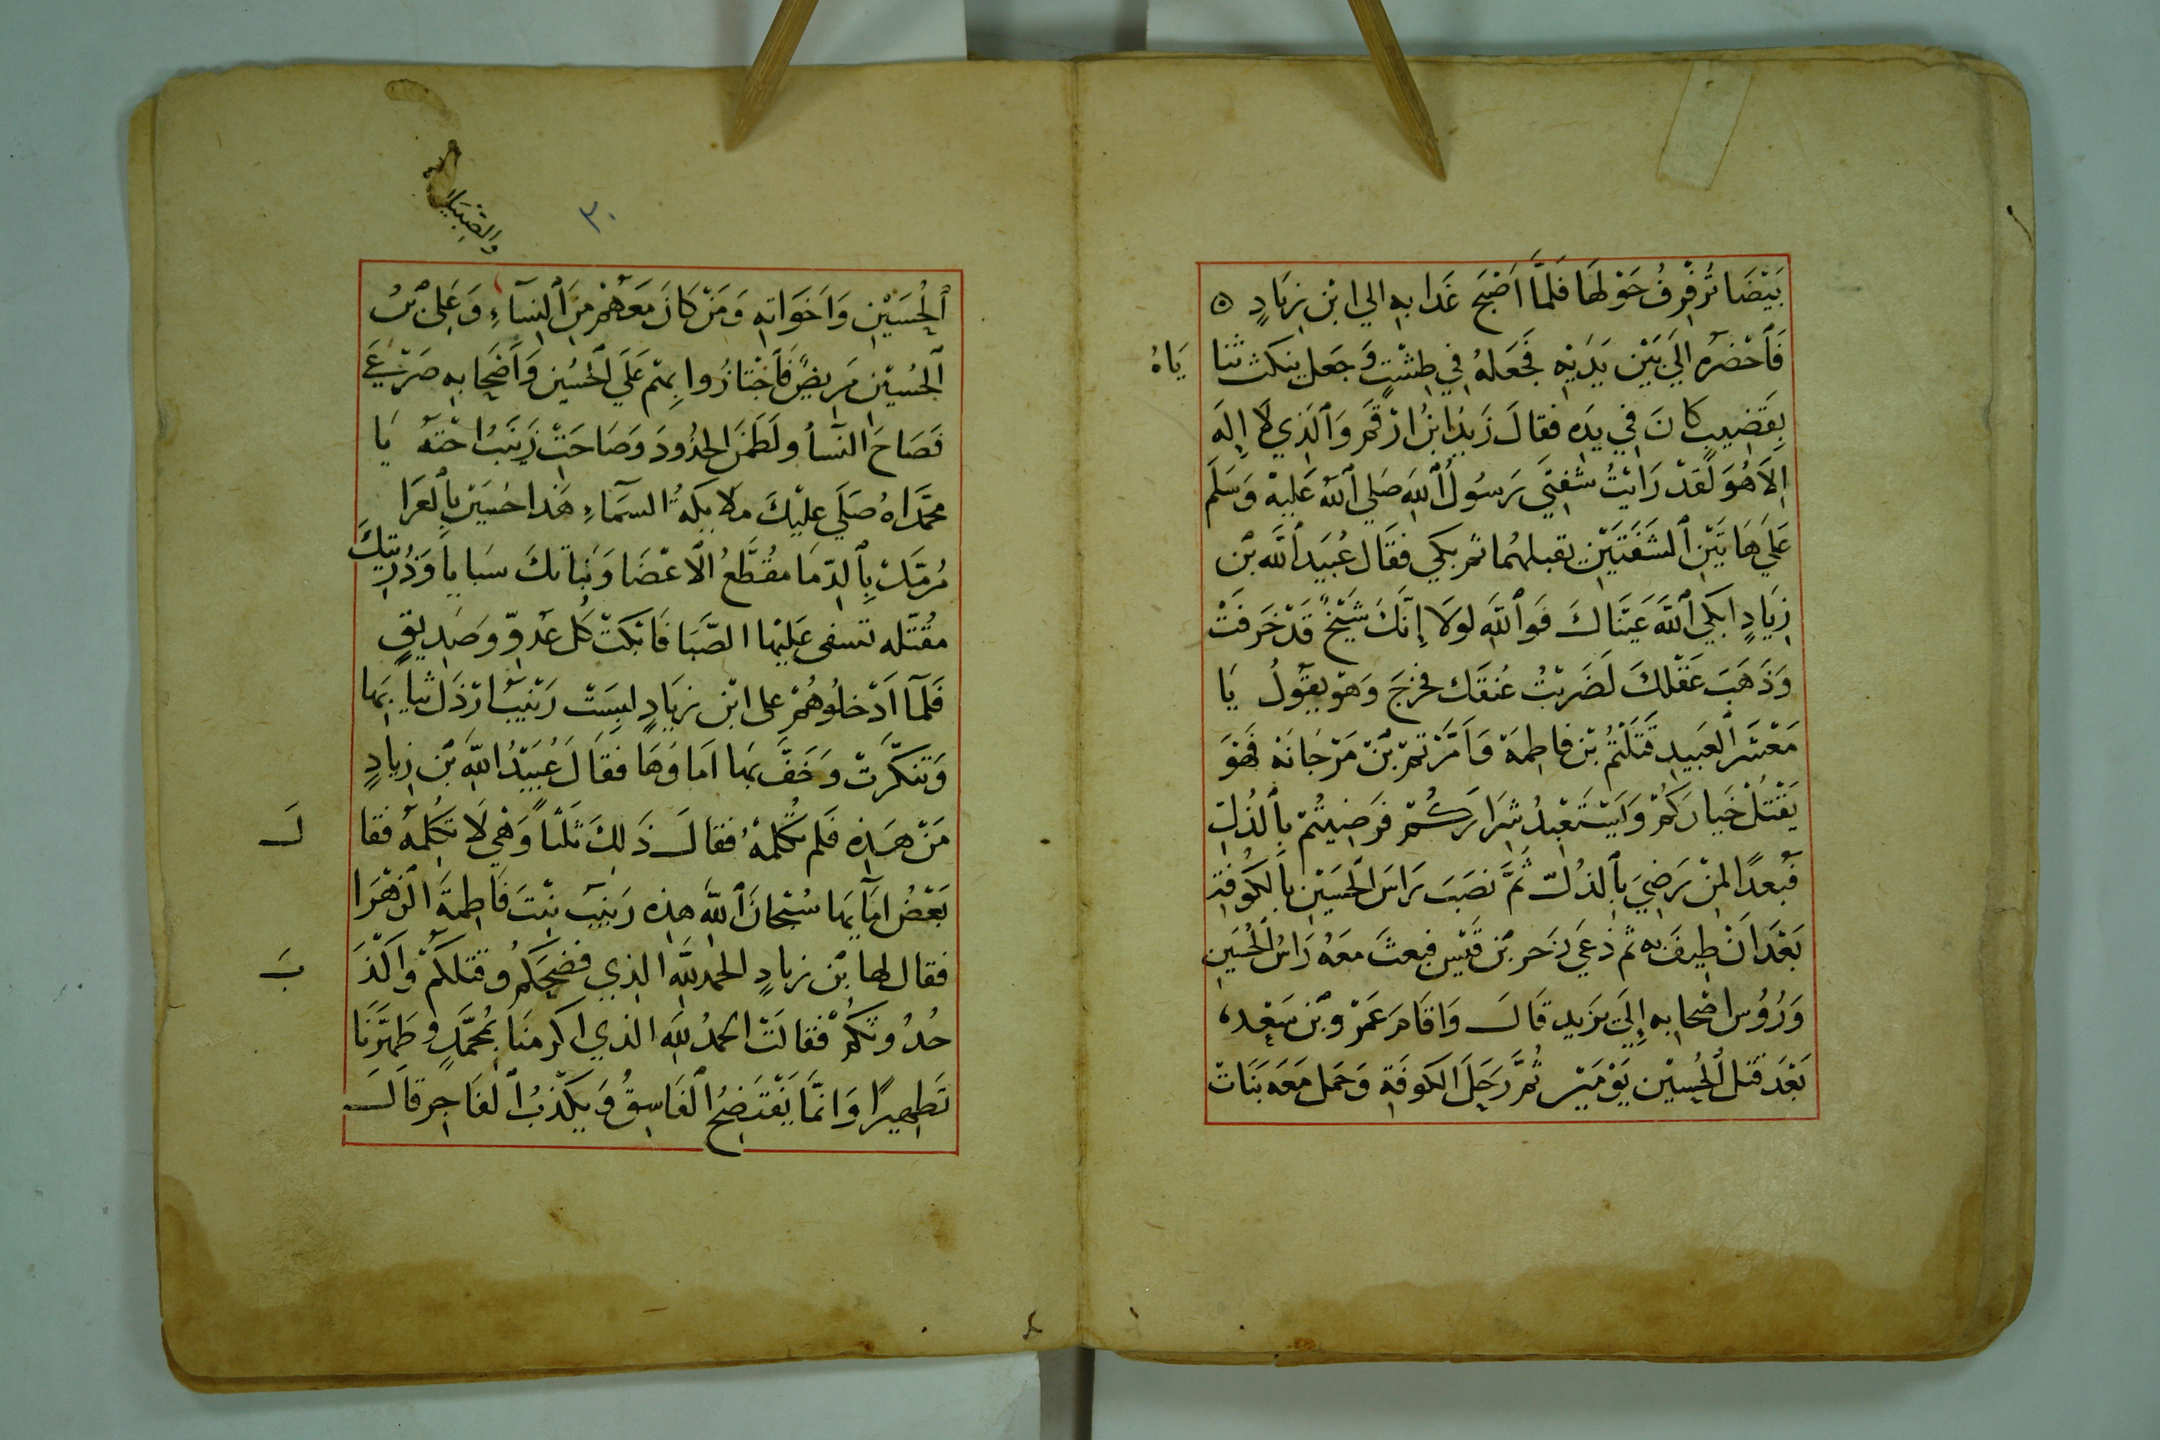 بَيْضَا تُرَفْرِفُ حَوْلَهَا فَلَمَّا اَصْبَحَ غَدَا بِهِ اِلي ابْنِ زِيَادٍ ۞
فَاَحْضَرَهُ اِلَي بَيْنِ يَدَيْهِ فَجَعَلَهُ فِي طِشْتٍ وَجَعل ينكث ثنا
يَاهُ
بِقَضِيبٍ كَانَ فِي يَدِهِ فقَالَ زَيدُ ابْنُ ارْقَمَ وَالَّذِي لَا إِلَهَ
اِلاَّ هُوَ لَقَدْ رَايْتُ شَفَتَي رَسُولُ اللهِ صَلي اللهُ عَلَيهِ وَسَلَّمَ
عَلَي هَا بَيْنِ الشَفَتَيْنِ يقبلهُمَا ثم بكي فقَال عُبَيد اللهِ بْن
زِيَادٍ ابكَي اللهَ عَيْنَاكَ فَواللهِ لولَا إِنَّكَ شَيْخٌ قَدْ خَرفَتْ
وَذَهَبَ عَقْلكَ لَضَرَبْتُ عُنقَك فخرَجَ وَهوَ يقوُلُ يَا
مَعْشَر العَبِيدِ قَتَلْتُمُ بْن فاطِمَة وَاَمَّرْتمْ بْنَ مَرْجَانَهْ فَهْوَ
يَقْتُلُ خَيارَكُمْ وَايَسْتَعْبِدُ شِرَارَكُمْ فَرَضِيتُمْ بِالذُلِّ
فَبُعدًا لِمَنْ رَضِيَ بِالذُلِّ ثُمَّ نَصَبَ رَاسَ الحُسَيْنِ بِالكُوفَةِ
بَعْدَ اَنْ طِيفَ بِهِ ثم دُعِيَ زَحر بْن قَيْسٍ فبعثَ مَعَهُ رَاسُ الحُسَينِ
وَرُؤُس اصْحَابِهِ إِلَي يَزيد قَالَ وَاقَامَ عَمْرو بْن سَعْدٍ
بَعْدَ قَتل الحُسيْن يَوْمَيْنِ ثُمَّ رَحَلَ الكوفَةِ وَحَمل مَعَهُ بَنَاتْ
٣٠
والصِّبْيَانِ
الحُسَيْنِ وَاَخَوَاتِهِ وَمَنْ كَانَ مَعَهُمْ مِنَ النِسَاءِ وَعَلِي بْنُ
الحُسيْنِ مَرِيضٌ فَاجْتَازُوا بِهِمْ عَلَي الحُسَينِ وَاَصْحَابِهِ صَرْعَي
فَصَاحَ النِسَاُ ولَطَمْنَ الخدُودَ وَصَاحَتْ زَيْنَبُ اخْتهُ يَا
محمَّدَاهُ صَلَي عليْكَ ملايكةُ السَمَاءِ هَذا حُسَيْن بِالعَرَا
مُرَمَّلْ بِالدِّمَا مُقَطَّعُ الاَعْضَا وَبَنَاتكَ سَبايا وَذُرِّيتِكَ
مُقَتَّله تسفى عَليْهَا الصَّبَا فَابْكَتْ كُل عَدُوٍّ وصَدِيقٍ
فَلَمَّا اَدْخَلُوهُمْ على ابْن زِيَادٍ لبِسَتْ زَيْنَبُ ارْذَل ثيابِهَا
وَتَنَكَّرَتْ وَحَفَّ بِهَا امَاوُهَا فقَالَ عُبَيْدُ اللهِ بْن زِيَادٍ
مَنْ هَذِهِ فَلم تُكَلمْهُ فقالَ ذَلِكَ ثَلثًا وَهْيَ لَا تكَلِمهُ فقا
لَ
بَعْضُ امَائِهَا سُبْحَانَ اللهِ هذِهِ زَينَب بِنتَ فَاطِمَةَ الزهْرَا
فقال لها بْن زيادٍ الحمد للهِ الذي فضحَكُمْ وقتلكمْ واكْذَ
بَ
حُدُوثَكُمْ فَقالَتْ الحمدُ للهِ الذي اكرمَنَا بمُحمَّدٍ وطهَّرَنَا
تَطهِيرًا وَانَّمَا يَفْتَضِحُ الفَاسِقُ وَيَكْذبُ الفَاجِر قالَ